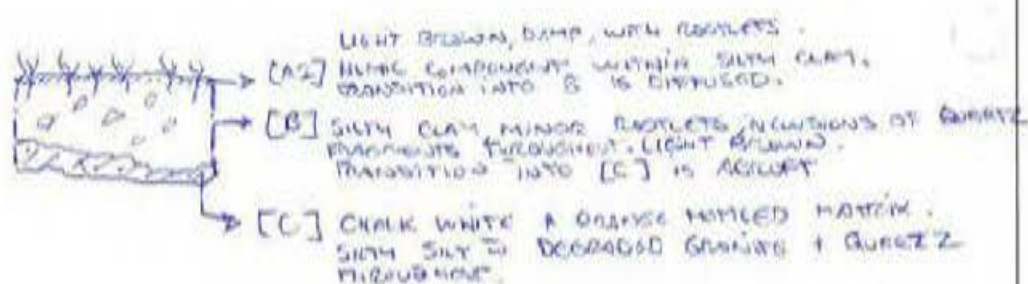 LIGHT BROWN, DAMP, WITH ROOTLETS.
[A2] HUMIC COMPONENT WITHIN SILTY CLAY.
TRANSITION INTO B IS DIFFUSED.
[B] SILTY CLAY, MINOR ROOTLETS, INCLUSIONS OF QUARTZ
FRAGMENTS THROUGHOUT. LIGHT BROWN.
TRANSITION INTO [C] IS ABRUPT
[C] CHALK WHITE & ORANGE MOTTLED MATRIX.
SILTY DEGRADED GRANITE + QUARTZ
THROUGHOUT.